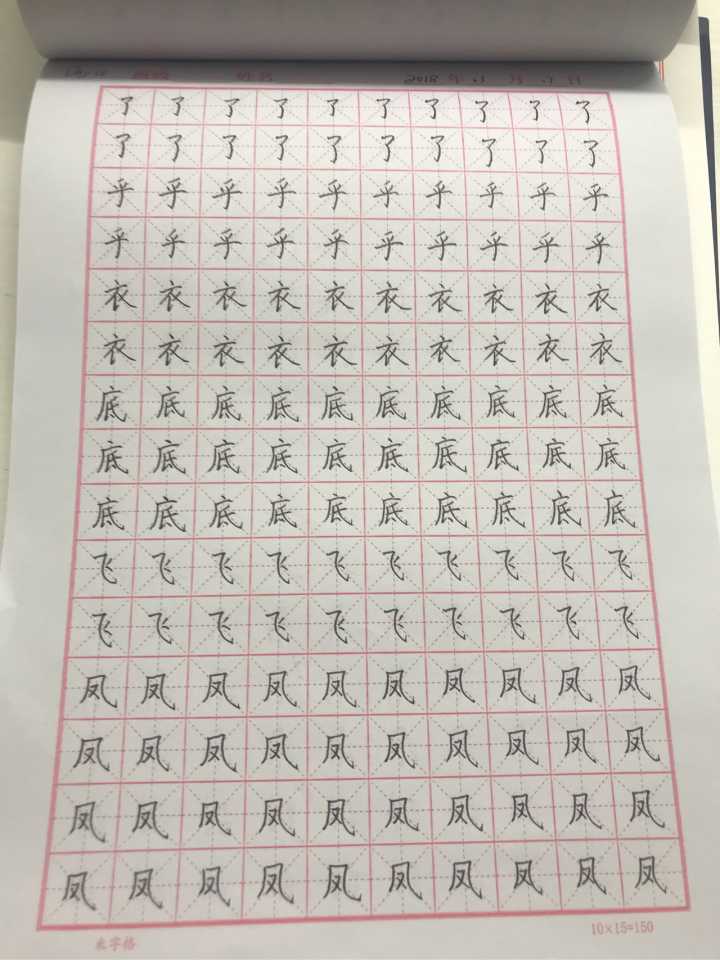 2018 年 月 日
了了了了了了了了了了
了了了了了了了了了了
乎乎乎乎乎乎乎乎乎乎
乎乎乎乎乎乎乎乎乎乎
衣衣衣衣衣衣衣衣衣衣
衣衣衣衣衣衣衣衣衣衣
底底底底底底底底底底
底底底底底底底底底底
底底底底底底底底底底
飞飞飞飞飞飞飞飞飞飞
飞飞飞飞飞飞飞飞飞飞
凤凤凤凤凤凤凤凤凤凤
凤凤凤凤凤凤凤凤凤凤
凤凤凤凤凤凤凤凤凤凤
凤凤凤凤凤凤凤凤凤凤
米字格 10×15=150